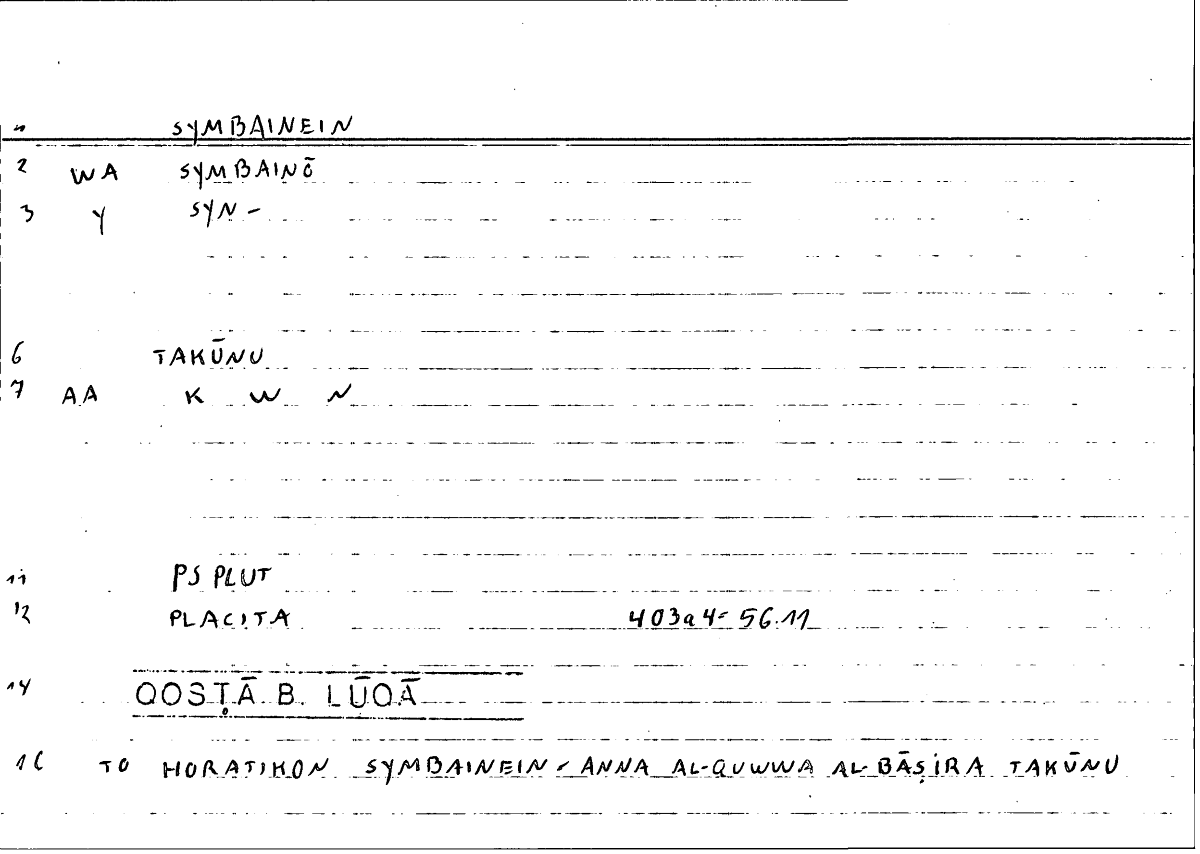 1 SYMBAINEIN
2 WA SYMBAINŌ
3 Y SYN-
6 TAKŪNU
7 AA K W N
11 PS PLUT
12 PLACITA 403a4-56.11
14 QOSṬĀ B. LŪQĀ
16 TO HORATIKON SYMBAINEIN - ANNA AL-QUWWA AL-BĀṢIRA TAKŪNU